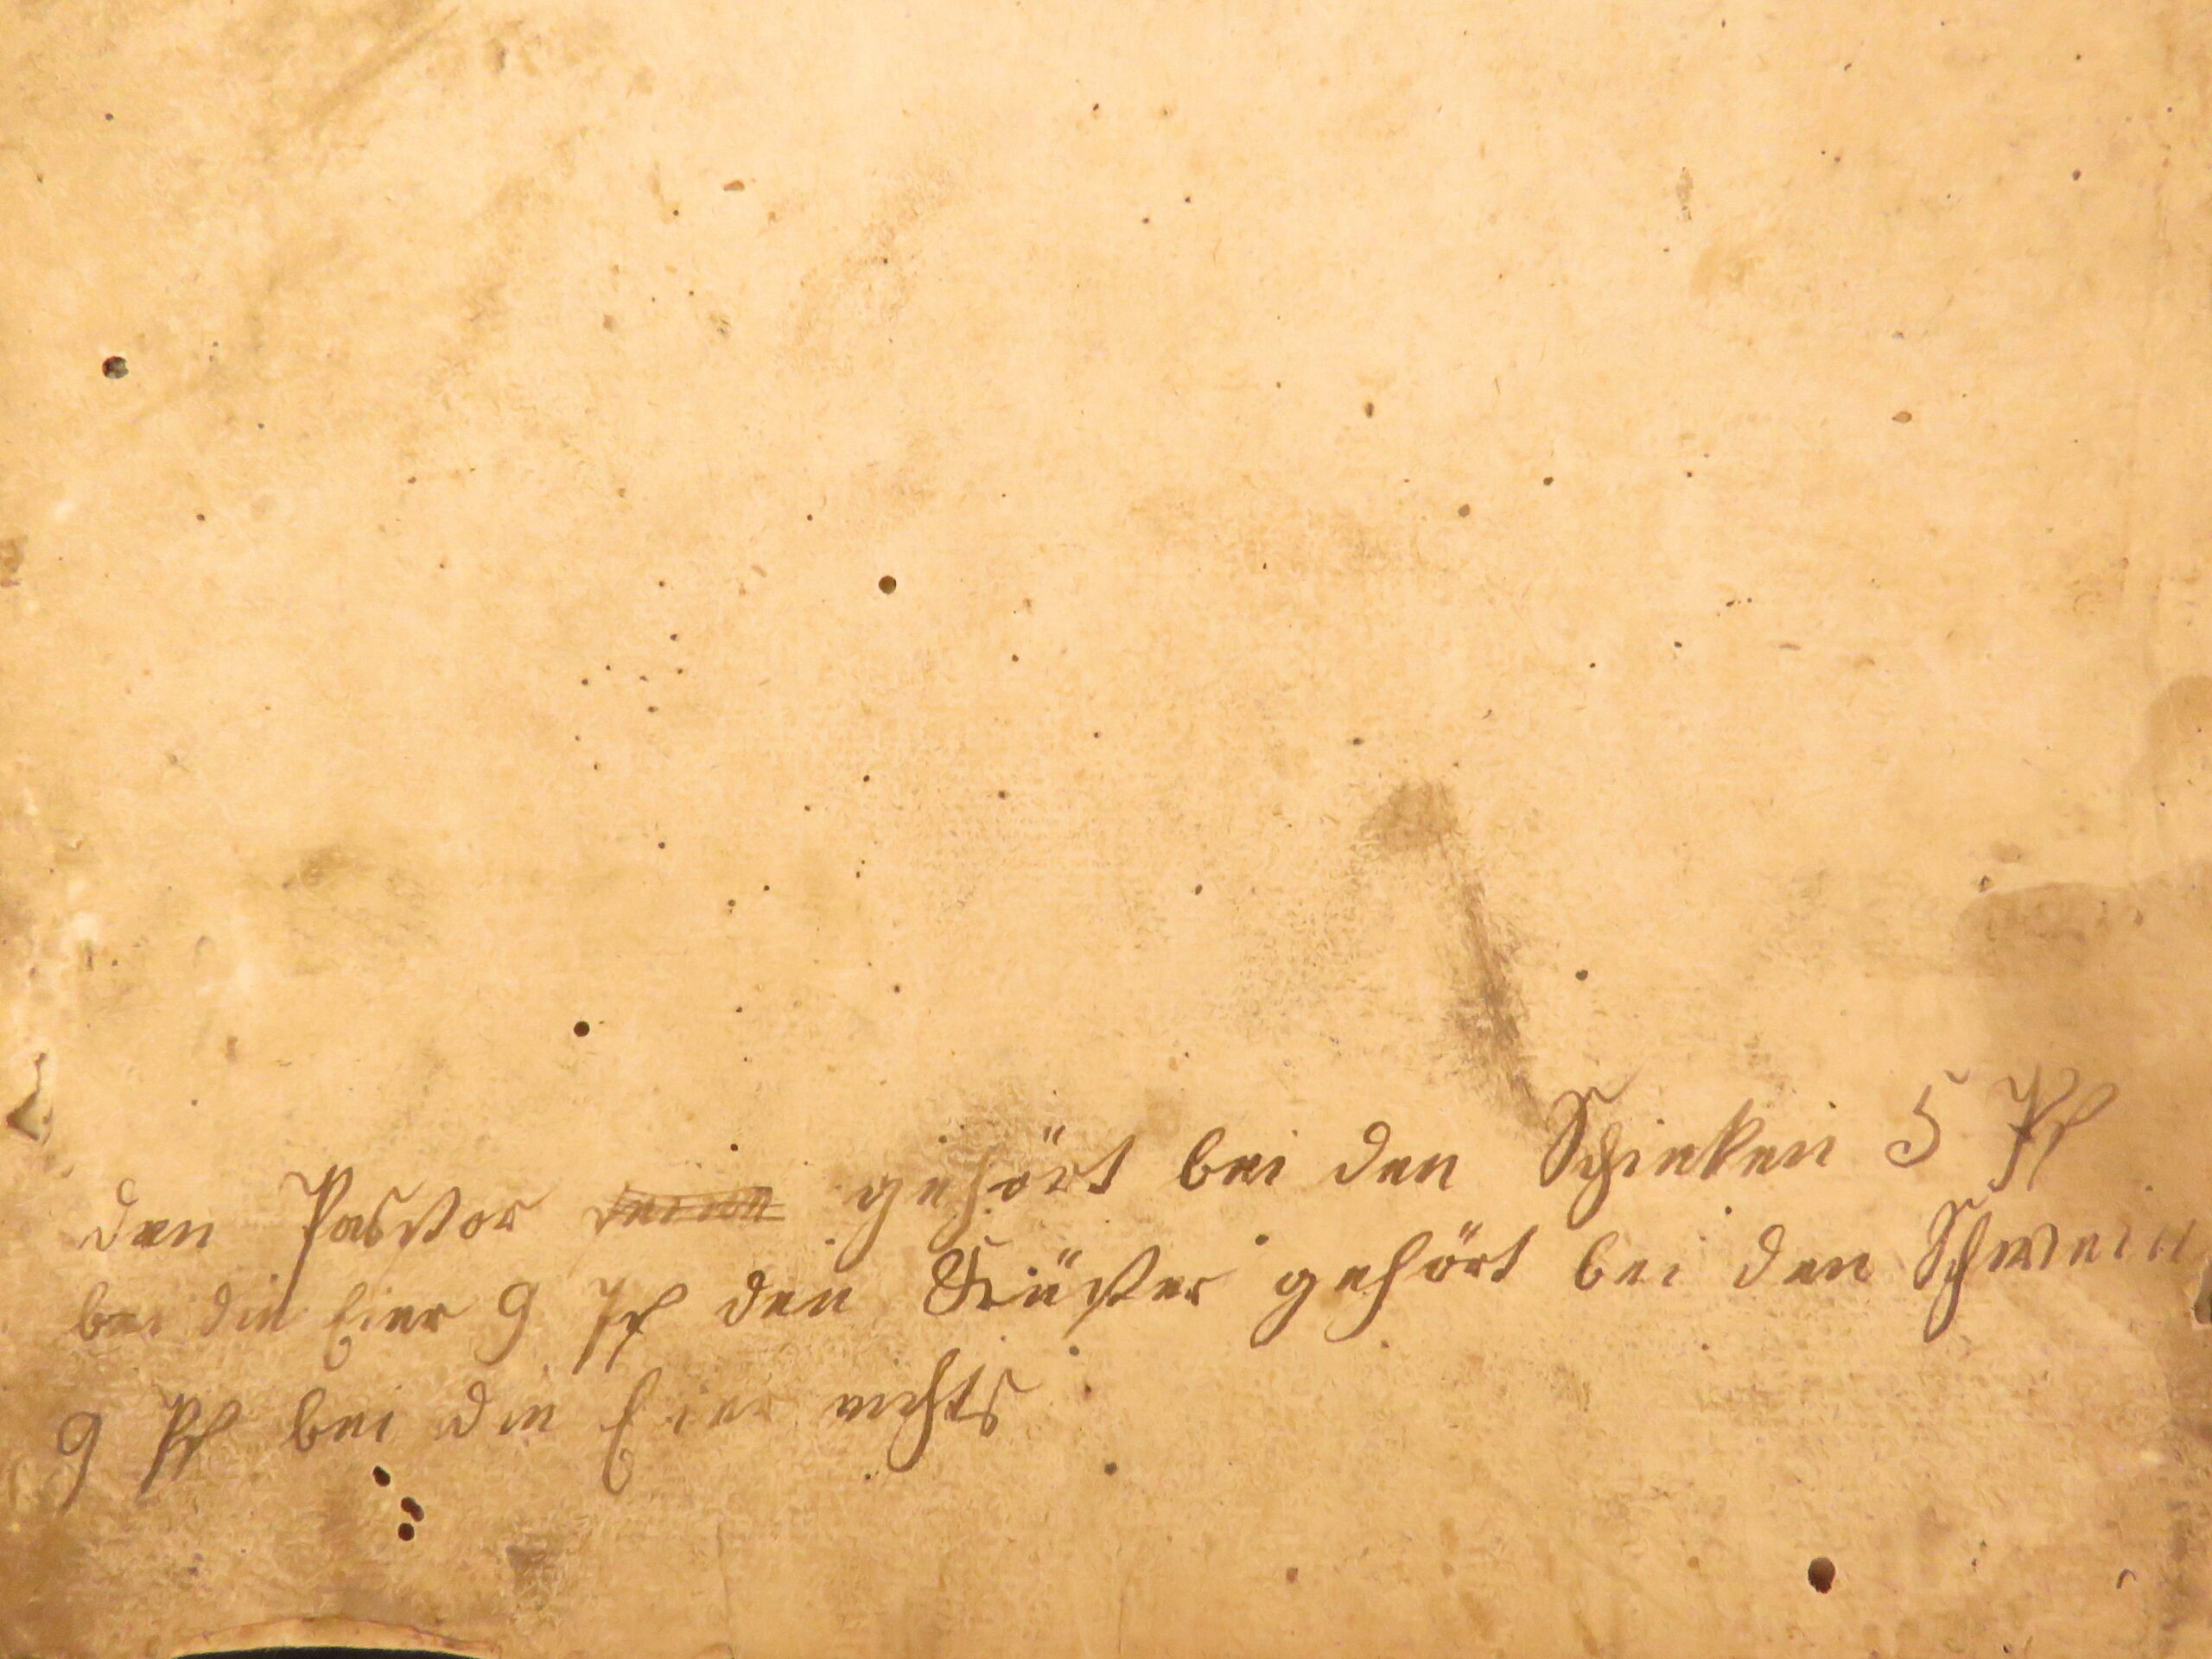 den Pastor gehört bei den Schinken 5 Pf
bei die Eier 9 Pf den Küster gehört bei den Schwein
9 Pf bei die Eier nichts